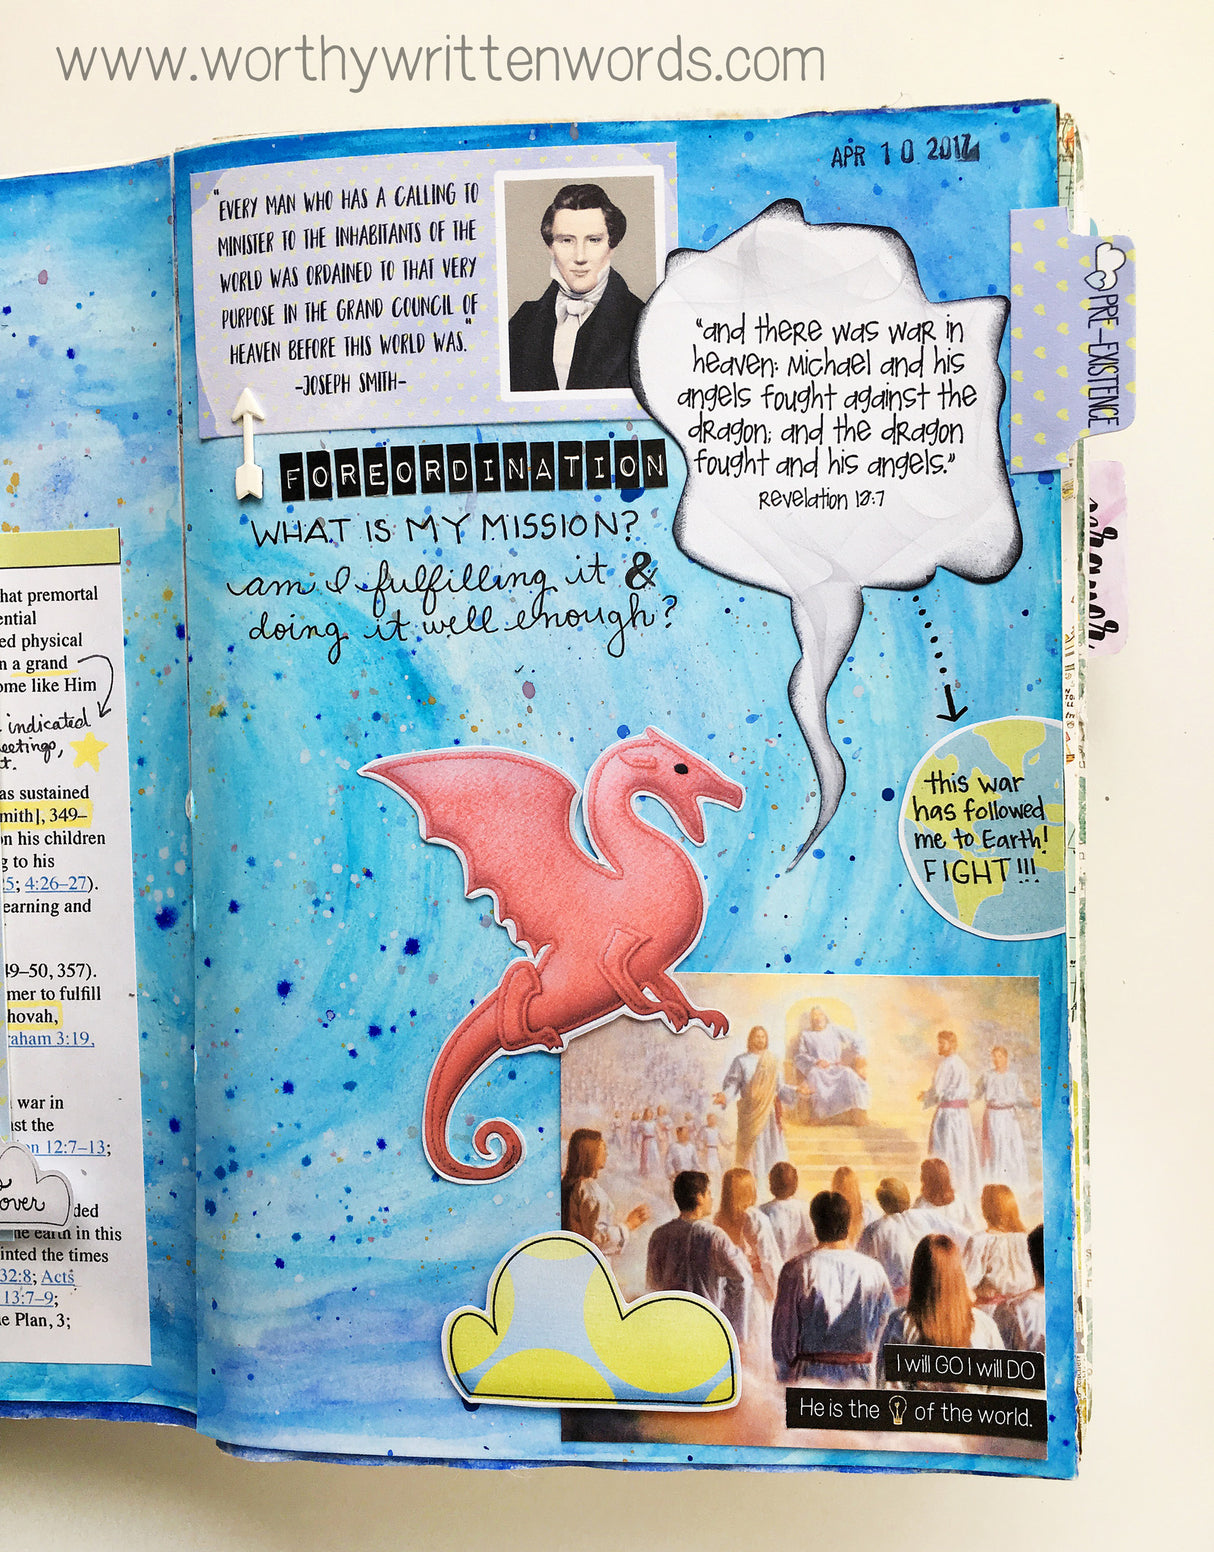 www.worthywrittenwords.com
APR 10 2017
"EVERY MAN WHO HAS A CALLING TO
MINISTER TO THE INHABITANTS OF THE
WORLD WAS ORDAINED TO THAT VERY
PURPOSE IN THE GRAND COUNCIL OF
HEAVEN BEFORE THIS WORLD WAS."
-JOSEPH SMITH-
FOREORDINATION
WHAT IS MY MISSION?
am I fulfilling it &
doing it well enough?
"and there was war in
heaven: Michael and his
angels fought against the
dragon; and the dragon
fought and his angels."
Revelation 12:7
PRE-EXISTENCE
this war
has followed
me to Earth!
FIGHT!!!
I will GO I will DO
He is the of the world.
hat premortal
ential
ed physical
n a grand
ome like Him
indicated
eetings,
t.
as sustained
mith], 349–
on his children
g to his
5; 4:26–27).
earning and
49–50, 357).
mer to fulfill
hovah,
raham 3:19,
war in
nst the
on 12:7–13;
over
ded
he earth in this
inted the times
32:8; Acts
13:7–9;
e Plan, 3;